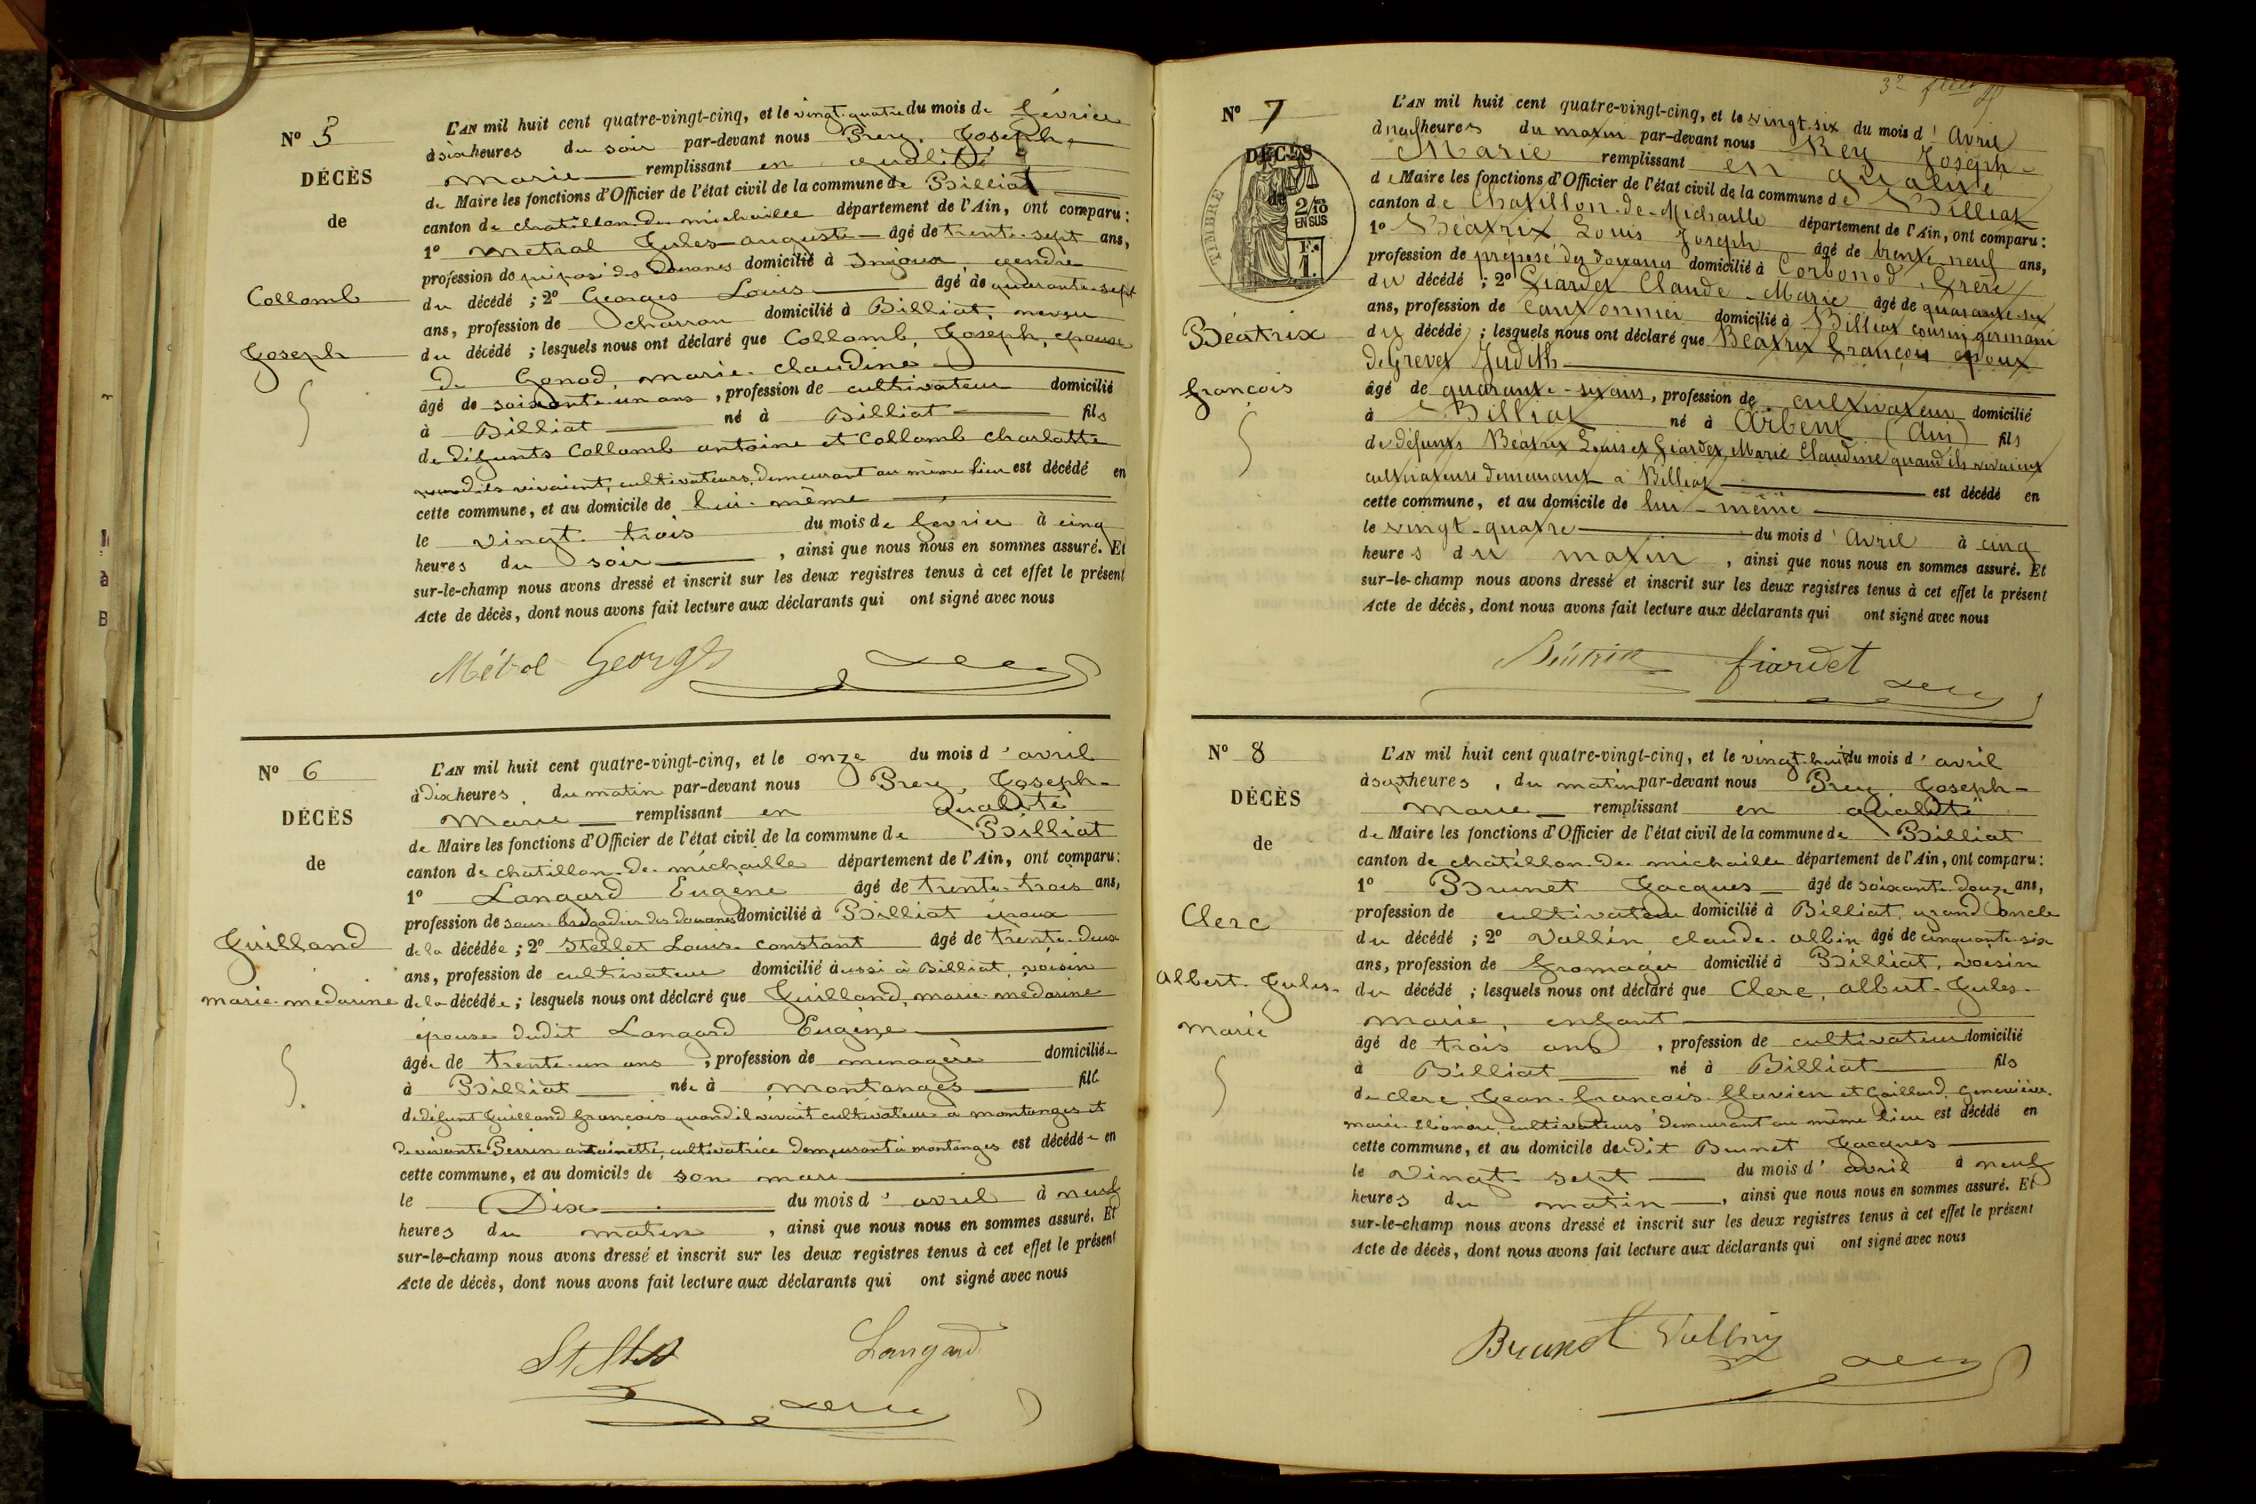 Nº 5
DÉCÈS
de
Collomb
Joseph
L'AN mil huit cent quatre-vingt-cinq, et le vingt-quatre du mois de février
à six heures du soir par-devant nous Prey, Joseph-
Marie remplissant en qualité
de Maire les fonctions d'Officier de l'état civil de la commune de Billiat
canton de chatillon-de-michaille département de l'Ain, ont comparu:
1º metral Jules-auguste âgé de trente-sept ans,
profession de préposé des douanes domicilié à Injoux gendre
du décédé ; 2º Georges Louis âgé de quarante-sept
ans, profession de charron domicilié à Billiat, neveu
du décédé ; lesquels nous ont déclaré que Collomb, Joseph, époux
de Genod, marie-claudine
âgé de soixante-un ans, profession de cultivateur domicilié
à Billiat né à Billiat fils
de défunts Collomb antoine et Collomb charlotte
quand ils vivaient, cultivateurs, demeurant au même lieu est décédé en
cette commune, et au domicile de lui-même
le vingt-trois du mois de février à cinq
heures du soir, ainsi que nous nous en sommes assuré. Et
sur-le-champ nous avons dressé et inscrit sur les deux registres tenus à cet effet le présent
Acte de décès, dont nous avons fait lecture aux déclarants qui ont signé avec nous
Métral Georges
Nº 6
DÉCÈS
de
Guilland
marie-médarine
L'AN mil huit cent quatre-vingt-cinq, et le onze du mois d'avril
à Dix heures du matin par-devant nous Prey, Joseph-
Marie remplissant en qualité
de Maire les fonctions d'Officier de l'état civil de la commune de Billiat
canton de chatillon-de-michaille département de l'Ain, ont comparu:
1º Langard Eugène âgé de trente-trois ans,
profession de sous-brigadier des douanes domicilié à Billiat époux
de la décédée ; 2º Stellet Louis-constant âgé de trente-deux
ans, profession de cultivateur domicilié aussi à Billiat, voisin
de la décédée ; lesquels nous ont déclaré que Guilland, marie-médarine
épouse dudit Langard Eugène
âgée de trente-un ans, profession de ménagère domiciliée
à Billiat née à montanges fille
de défunt Guilland françois quand il vivait cultivateur à montanges et
de vivante Perrin antoinette, cultivatrice demeurant à montanges est décédée en
cette commune, et au domicile de son mari
le Dix du mois d'avril à neuf
heures du matin, ainsi que nous nous en sommes assuré. Et
sur-le-champ nous avons dressé et inscrit sur les deux registres tenus à cet effet le présent
Acte de décès, dont nous avons fait lecture aux déclarants qui ont signé avec nous
Langard
Nº 7
DÉCÈS
de
TIMBRE
2/10
EN SUS
Béatrix
françois
L'AN mil huit cent quatre-vingt-cinq, et le vingt-six du mois d'Avril
à neuf heures du matin par-devant nous Rey Joseph-
Marie remplissant en qualité
de Maire les fonctions d'Officier de l'état civil de la commune de Billiat
canton de Chatillon-de-Michaille département de l'Ain, ont comparu:
1º Béatrix Louis Joseph âgé de trente-neuf ans,
profession de préposé des douanes domicilié à Corbonod, frère
du décédé ; 2º Giardet Claude-Marie âgé de quarante-six
ans, profession de cantonnier domicilié à Billiat cousin germain
du décédé ; lesquels nous ont déclaré que Béatrix françois époux
de Grevet Judith
âgé de quarante-six ans, profession de cultivateur domicilié
à Billiat né à Arbent (Ain) fils
de défunts Béatrix Louis et Giardet, Marie Claudine quand ils vivaient
cultivateurs demeurant à Billiat est décédé en
cette commune, et au domicile de lui-même
le vingt-quatre du mois d'Avril à cinq
heures du matin, ainsi que nous nous en sommes assuré. Et
sur-le-champ nous avons dressé et inscrit sur les deux registres tenus à cet effet le présent
Acte de décès, dont nous avons fait lecture aux déclarants qui ont signé avec nous
Béatrix Giardet
Nº 8
DÉCÈS
de
Clerc
Albert-Jules-
Marie
L'AN mil huit cent quatre-vingt-cinq, et le vingt-huit du mois d'avril
à heures, du matin par-devant nous Prey, Joseph-
Marie remplissant en qualité
de Maire les fonctions d'Officier de l'état civil de la commune de Billiat
canton de chatillon-de-michaille département de l'Ain, ont comparu:
1º Brunet Jacques âgé de soixante-douze ans,
profession de cultivateur domicilié à Billiat, grand oncle
du décédé ; 2º Vallin claude-albin âgé de cinquante-six
ans, profession de fromager domicilié à Billiat, voisin
du décédé ; lesquels nous ont déclaré que Clerc, albert-Jules-
marie, enfant
âgé de trois ans, profession de cultivateur domicilié
à Billiat né à Billiat fils
de clerc Jean-françois-flavien et Gaillard, Geneviève-
marie-Eléonore, cultivateurs demeurant au même lieu est décédé en
cette commune, et au domicile dudit Brunet Jacques
le vingt-sept du mois d'avril à neuf
heures du matin, ainsi que nous nous en sommes assuré. Et
sur-le-champ nous avons dressé et inscrit sur les deux registres tenus à cet effet le présent
Acte de décès, dont nous avons fait lecture aux déclarants qui ont signé avec nous
Brunet Vallin